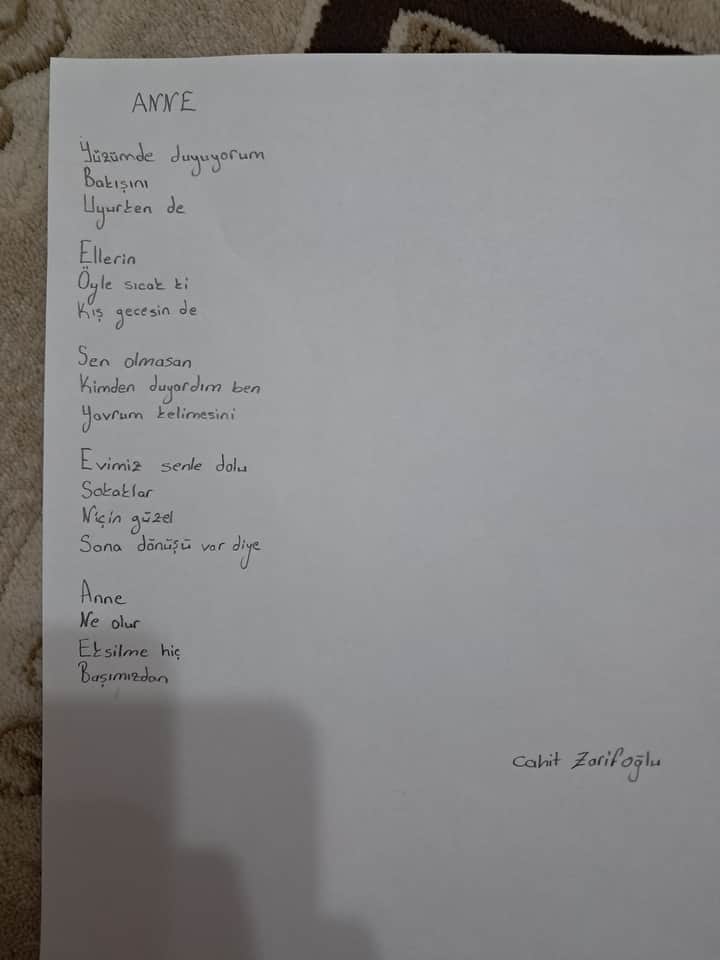 ANNE
Yüzümde duyuyorum
Bakışını
Uyurken de
Ellerin
Öyle sıcak ki
Kış gecesin de
Sen olmasan
Kimden duyardım ben
Yavrum kelimesini
Evimiz senle dolu
Sokaklar
Niçin güzel
Sana dönüşü var diye
Anne
Ne olur
Eksilme hiç
Başımızdan
Cahit Zarifoğlu